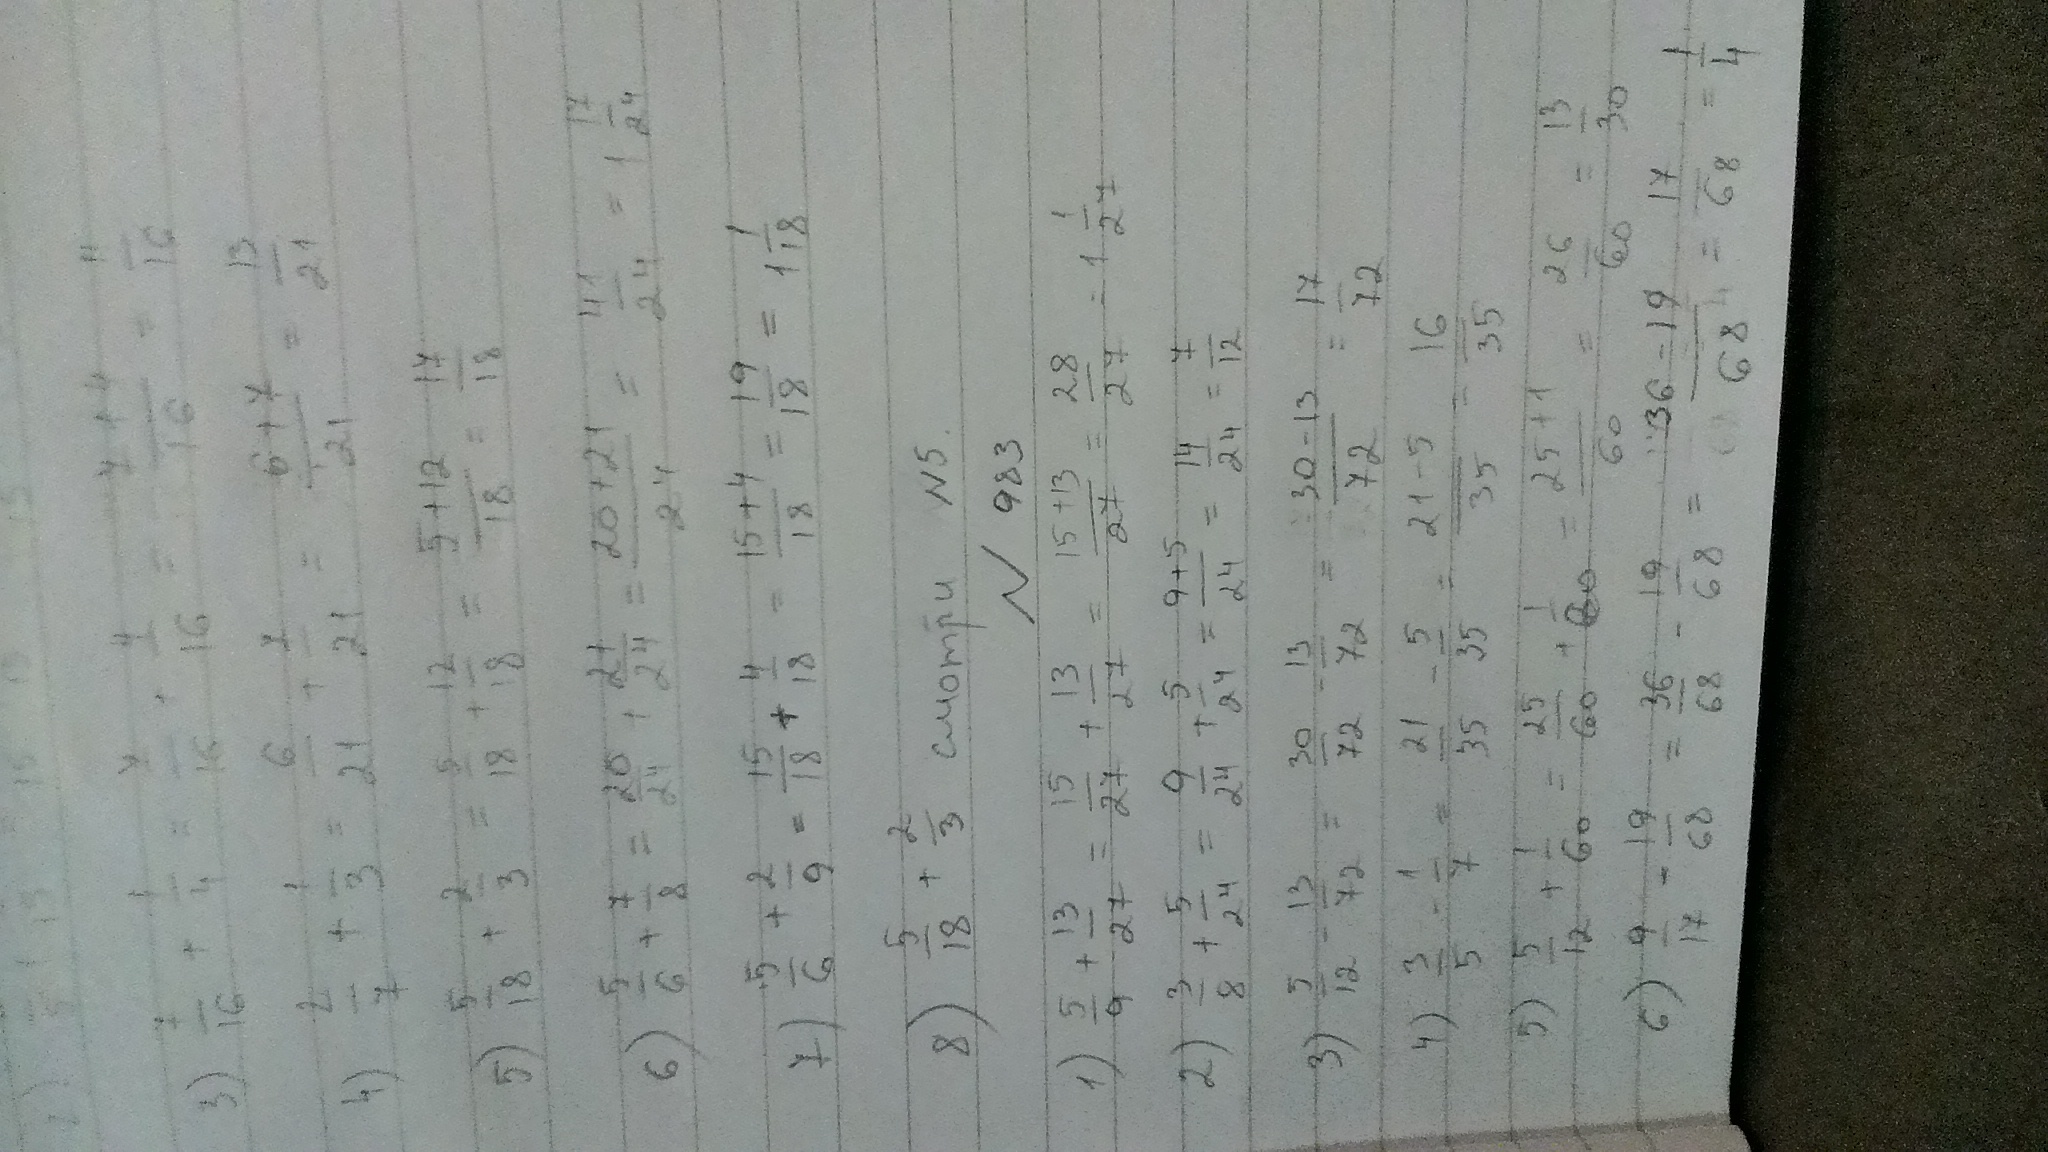 3) 7/16 + 1/4 = 7/16 + 4/16 = 7+4/16 = 11/16
4) 2/7 + 1/3 = 6/21 + 7/21 = 6+7/21 = 13/21
5) 5/18 + 2/3 = 5/18 + 12/18 = 5+12/18 = 17/18
6) 5/6 + 7/8 = 20/24 + 21/24 = 20+21/24 = 41/24 = 1 17/24
7) 5/6 + 2/9 = 15/18 + 4/18 = 15+4/18 = 19/18 = 1 1/18
8) 5/18 + 2/3 смотри N5.
N 983
1) 5/9 + 13/27 = 15/27 + 13/27 = 15+13/27 = 28/27 = 1 1/27
2) 3/8 + 5/24 = 9/24 + 5/24 = 9+5/24 = 14/24 = 7/12
3) 5/12 - 13/72 = 30/72 - 13/72 = 30-13/72 = 17/72
4) 3/5 - 1/7 = 21/35 - 5/35 = 21-5/35 = 16/35
5) 5/12 + 1/60 = 25/60 + 1/60 = 25+1/60 = 26/60 = 13/30
6) 9/17 - 19/68 = 36/68 - 19/68 = 36-19/68 = 17/68 = 1/4